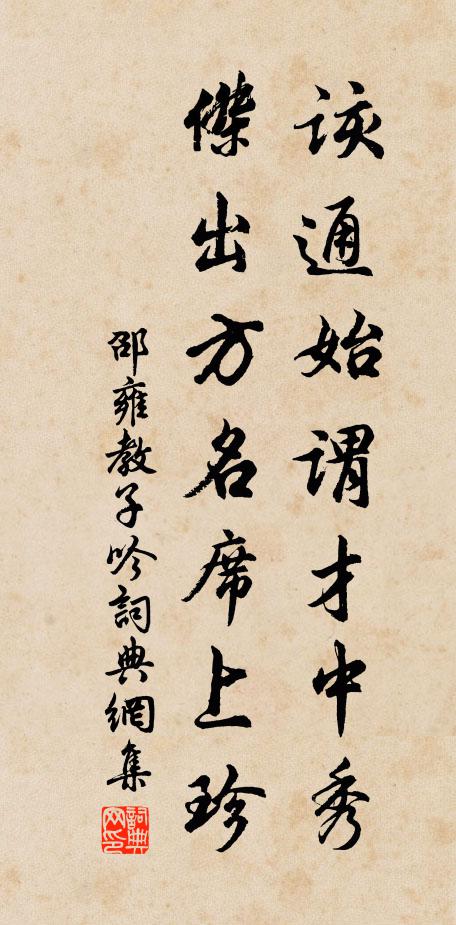 該通始謂才中秀
傑出方名席上珍
邵雍教子吟詞典網集
詞典网印